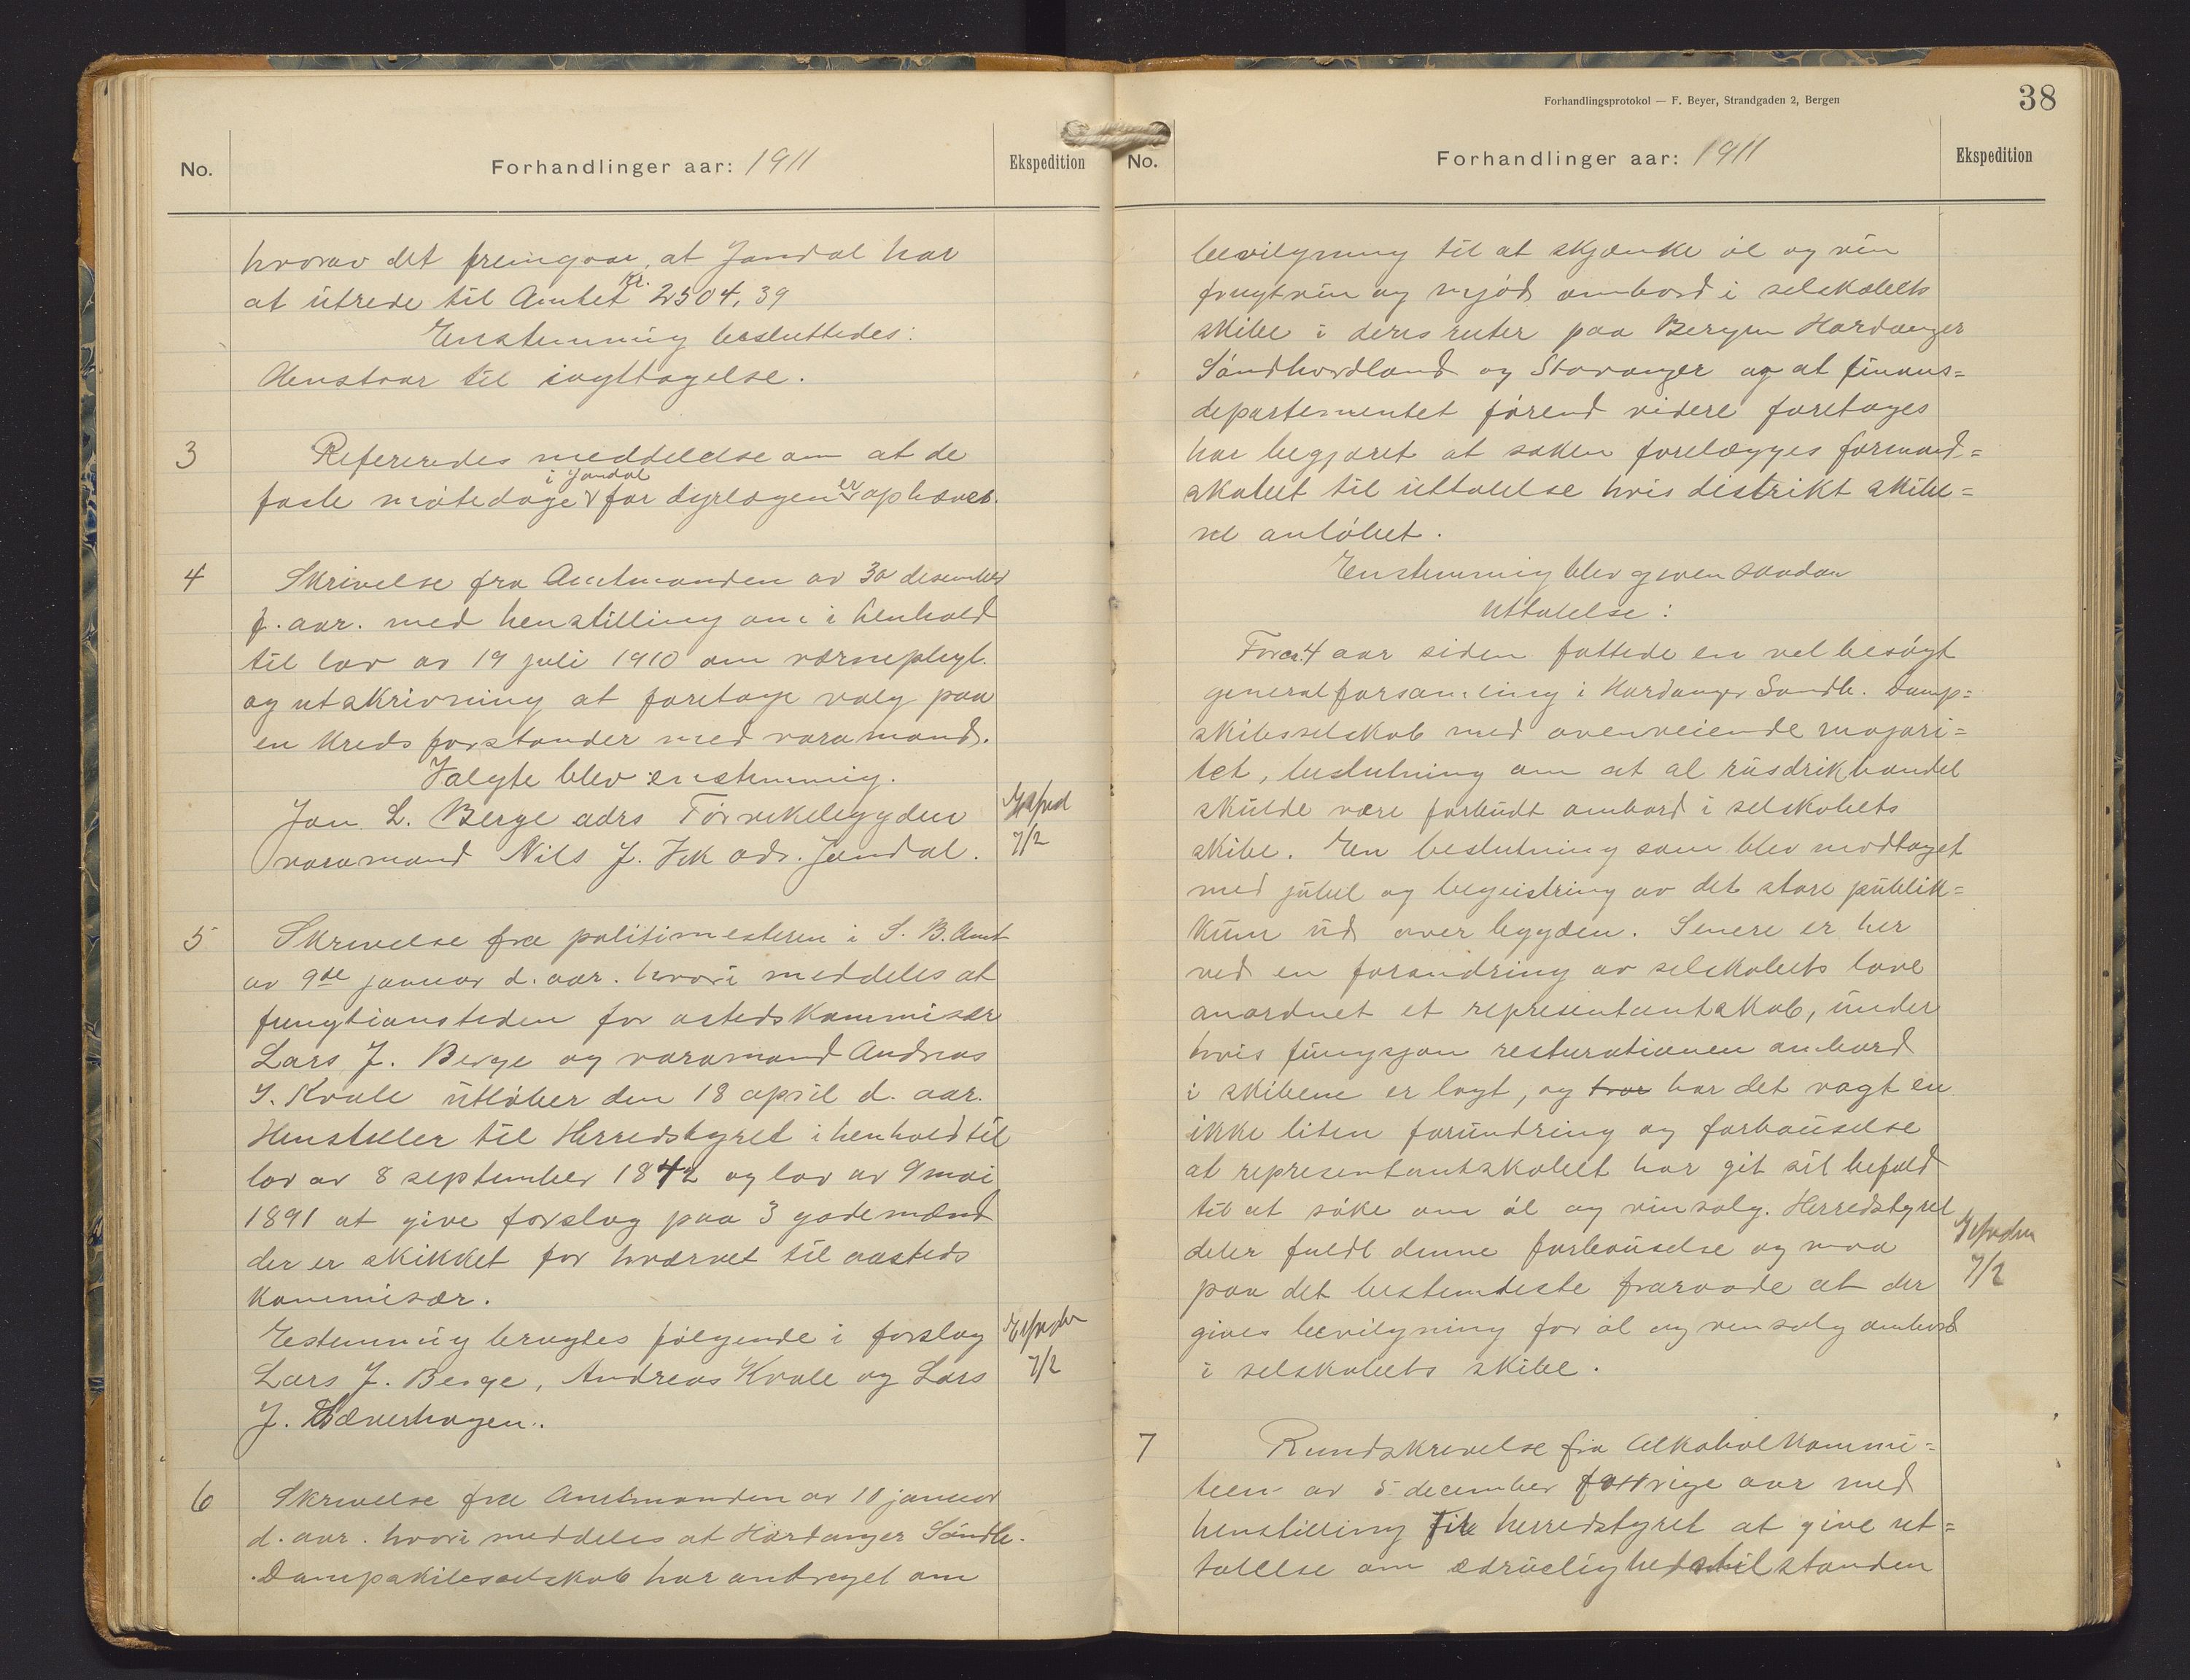 No.
Forhandlinger aar: 1911
Ekspedition
hvorav det fremgaar, at Jondal har
at utrede til Amtet kr. 2504,39
Enstemmig besluttedes:
Henstaar til iagttagelse.
3
Refereredes meddelelse om at de
faste mötedage i Jondal for dyrlægen er ophævet.
4
Skrivelse fra Amtmanden av 30 desember
f. aar. med henstilling om i henhold
til lov av 19 juli 1910 om værnepligt.
og utskrivning at foretage valg paa
en kredsforstander med varamand.
Valgte blev enstemmig.
Jon L. Berge adrs Törvikbygden
varamand Nils J. Vik adr. Jondal.
7/2
5
Skrivelse fra politimesteren i S. B. Amt
av 9de januar d. aar. hvori meddeles at
fungtionstiden for astedskommisær
Lars J. Berge og varamand Andreas
J. Kvale utlöber den 18 april d. aar.
Henstiller til Herredstyret i henhold til
lov av 8 september 1842 og lov av 9 mai
1891 at give forslag paa 3 gode mænd
der er skikket for hværvet til aasteds
kommisær.
Estemmig bragtes fölgende i forslag
Lars J. Berge, Andreas Kvale og Lars
J. Sæverhagen.
7/2
6
Skrivelse fra Amtmanden av 10 januar
d. aar. hvori meddeles at Hardanger Söndh.
Dampskibsselskab har andraget om
Forhandlingsprotokol — F. Beyer, Strandgaden 2, Bergen
38
No.
Forhandlinger aar: 1911
Ekspedition
bevilgning til at skjænke öl og vin
frugtvin og mjöd ombord i selskabets
skibe i deres ruter paa Bergen Hardanger
Söndhordland og Stavanger og at finans=
departementet förend videre foretages
har begjæret at saken forelægges formand=
skabet til uttalelse hvis distrikt skibe=
ne anlöbet.
Enstemmig blev given saadan
uttalelse:
For ca. 4 aar siden fattede en vel besögt
generalforsamling i Hardanger Sondh. Damp=
skibsselskab med overveiende majori=
tet, beslutning om at al rusdrikhandel
skulde være forbudt ombord i selskabets
skibe. En beslutning som blev modtaget
med jubel og begeistring av det store publik=
kum ud over bygden. Senere er her
ved en forandring av selskabets love
anordnet et representantskab, under
hvis fungsjon resturationen ombord
i skibene er lagt, og har det vagt en
ikke liten forundring og forbauselse
at representantskabet har git sit befald
til at söke om öl og vinsalg. Herredstyret
deler fuldt denne forbauselse og maa
paa det bestemteste fraraade at der
gives bevilgning for öl og vensalg ombord
i selskabets skibe.
7/2
7
Rundskrivelse fra Alkoholkommi=
teen av 5 december forrige aar med
henstilling til herredstyret at give ut=
talelse om ædruelighedstilstanden